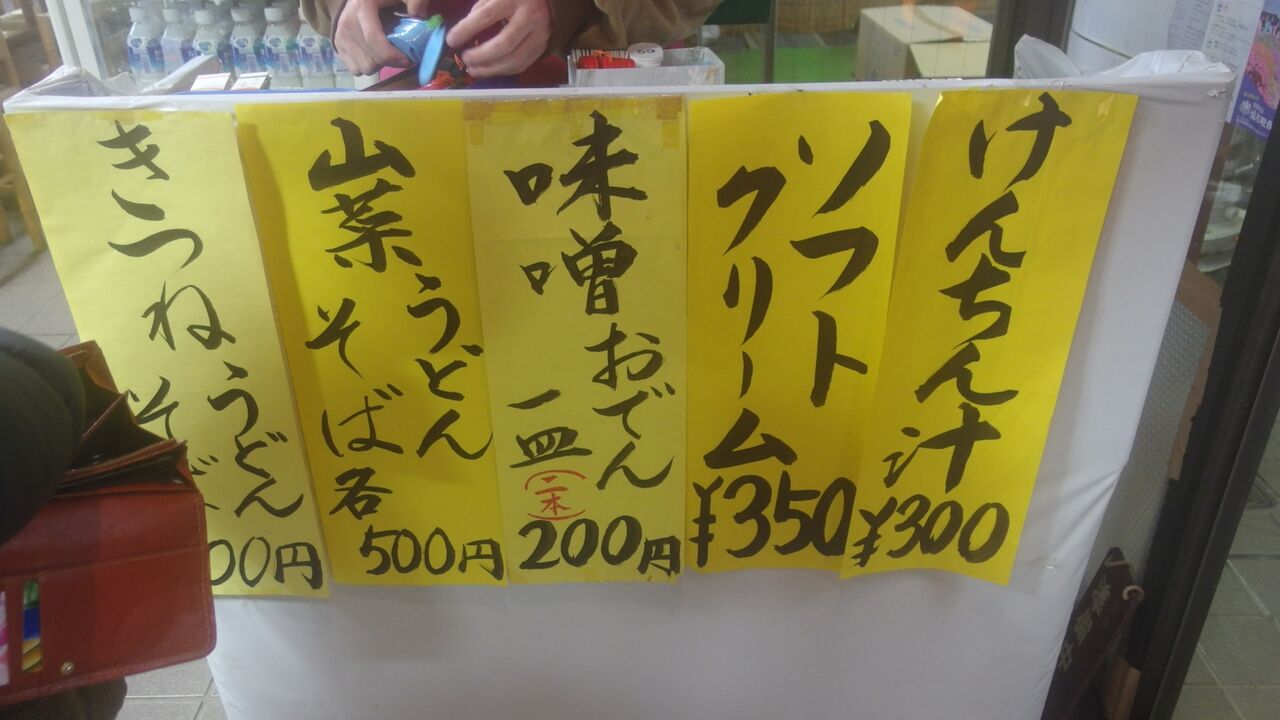 けんちん汁
¥300
ソフト
クリーム
¥350
味噌おでん
一皿
(二本)
200円
山菜うどん
そば各
500円
きつねうどん
そば
00円